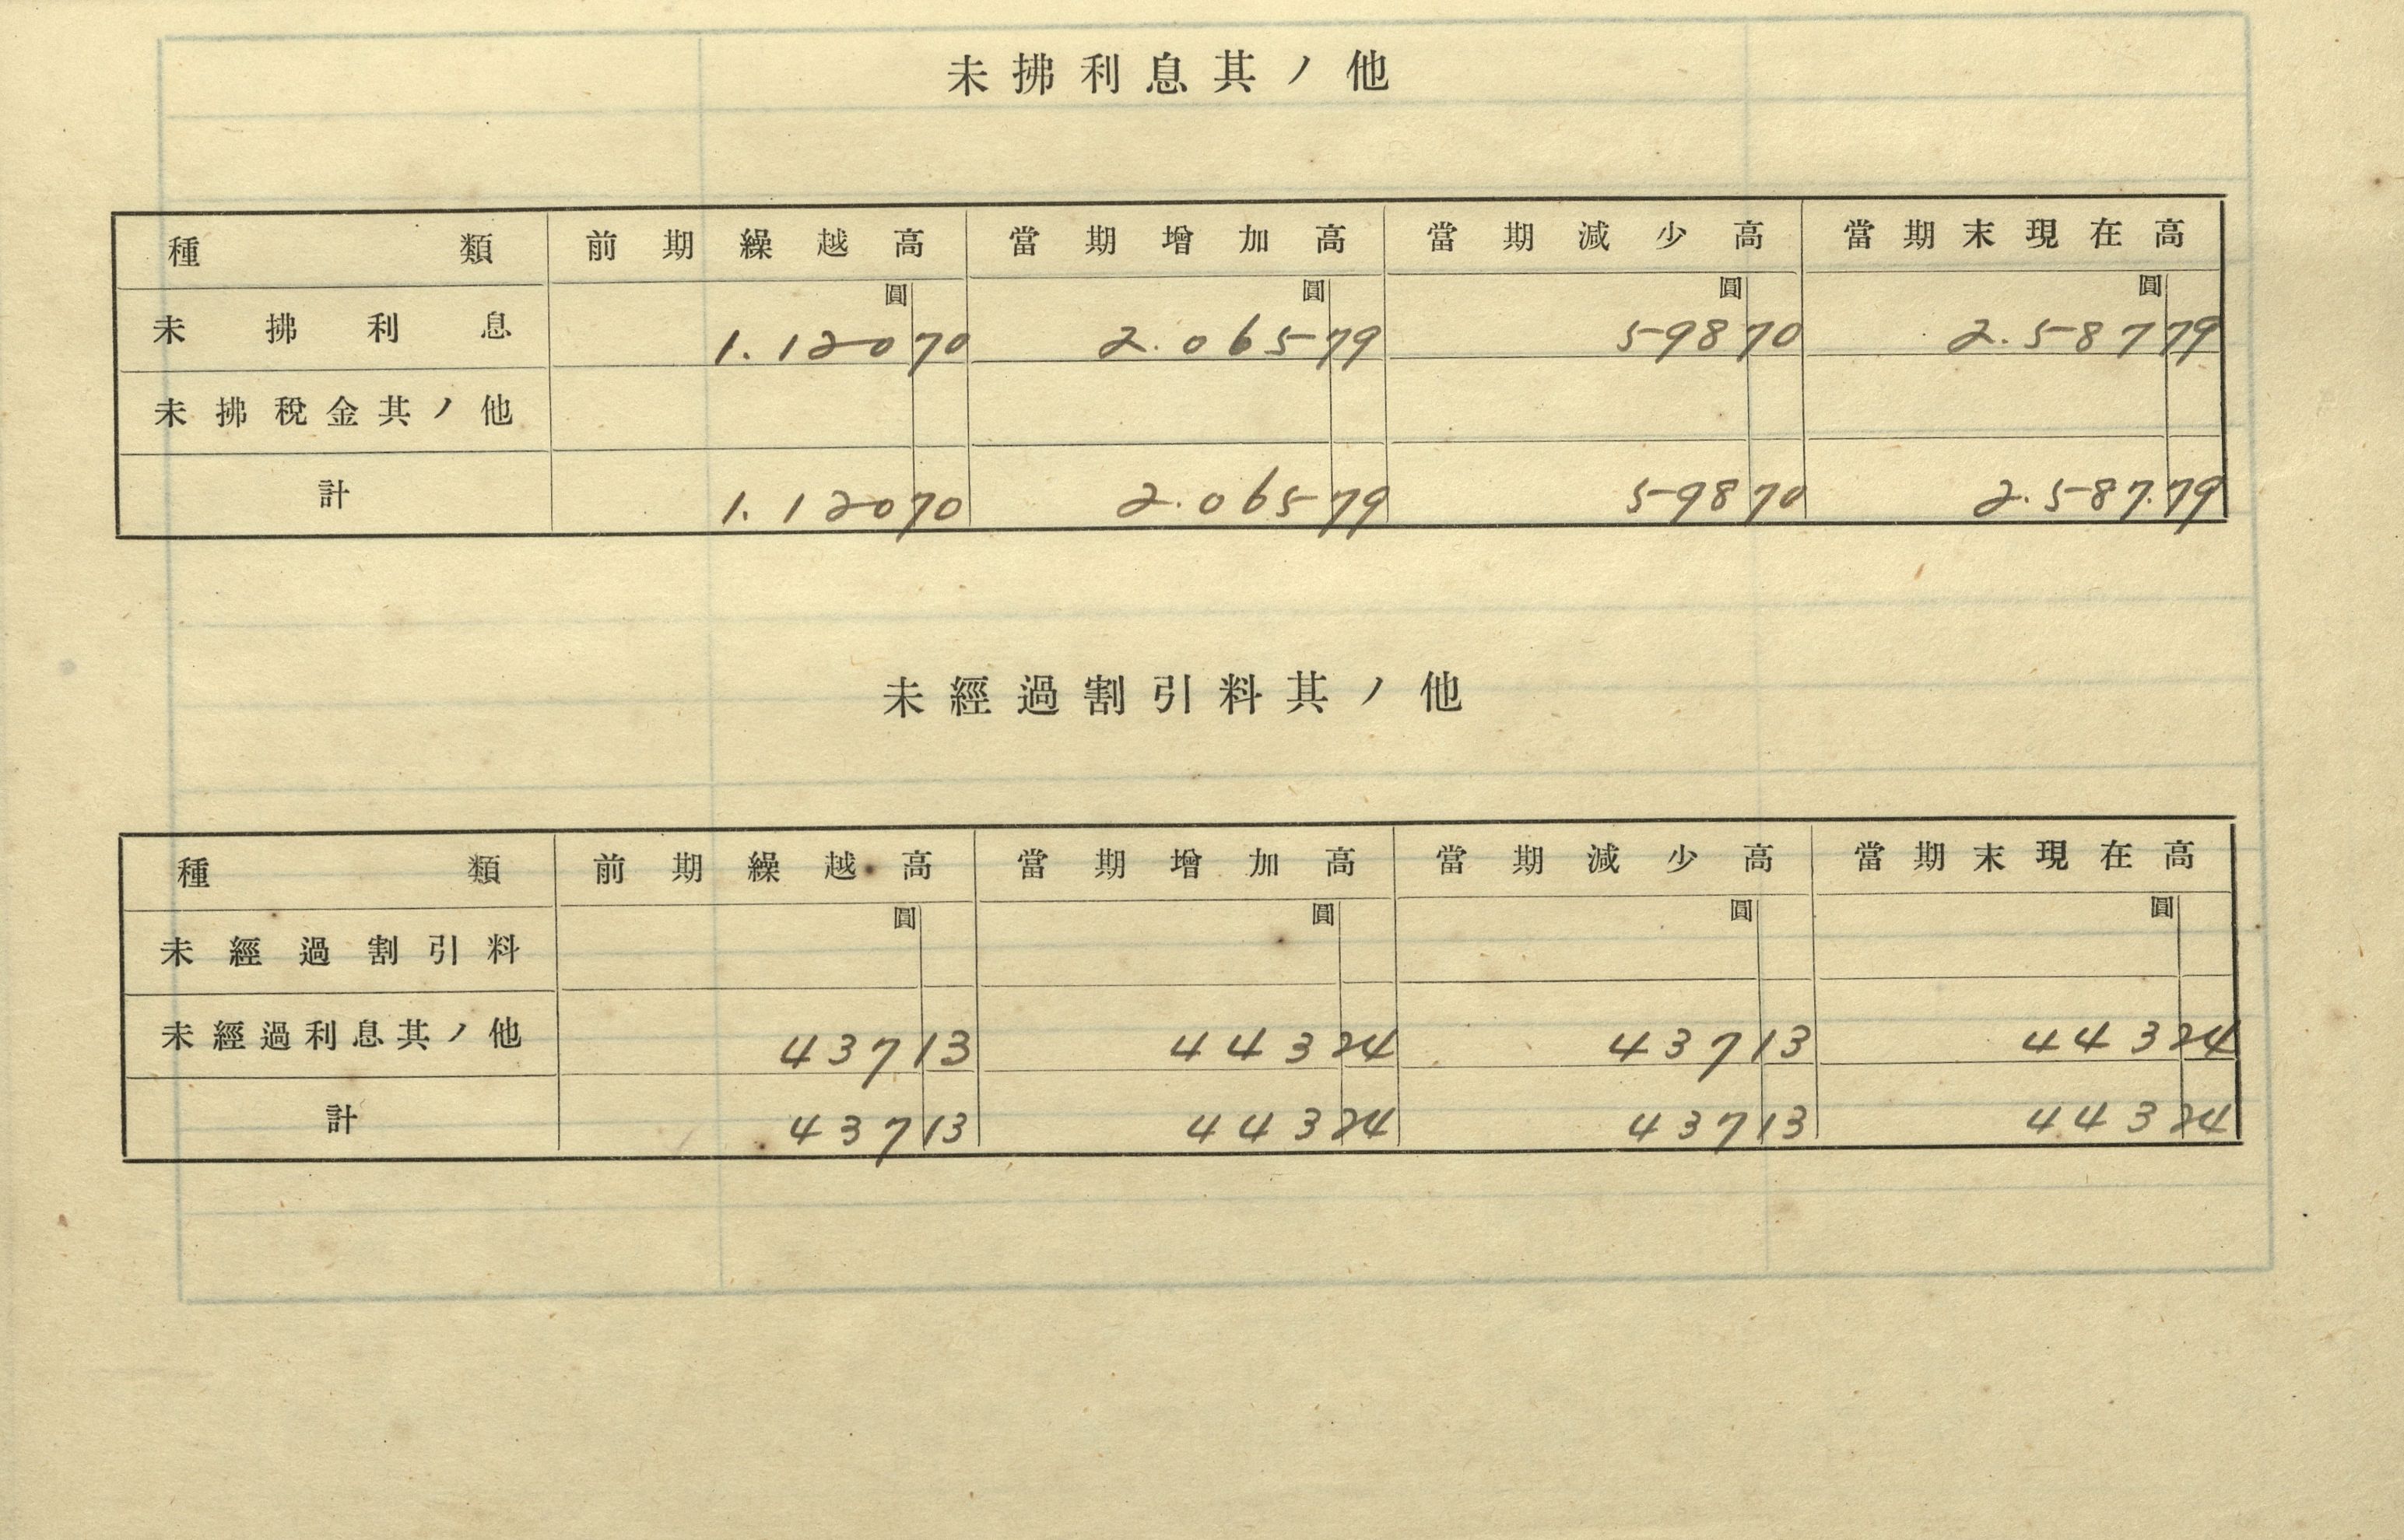 未拂利息其ノ他
種類 前期繰越高 當期增加高 當期減少高 當期末現在高
圓 圓 圓 圓
未拂利息 1.120 70 2.065 79 598 70 2.587 79
未拂稅金其ノ他
計 1.120 70 2.065 79 598 70 2.587.79
未經過割引料其ノ他
種類 前期繰越高 當期增加高 當期減少高 當期末現在高
圓 圓 圓 圓
未經過割引料
未經過利息其ノ他 437 13 443 24 437 13 443 24
計 437 13 443 24 437 13 443 24